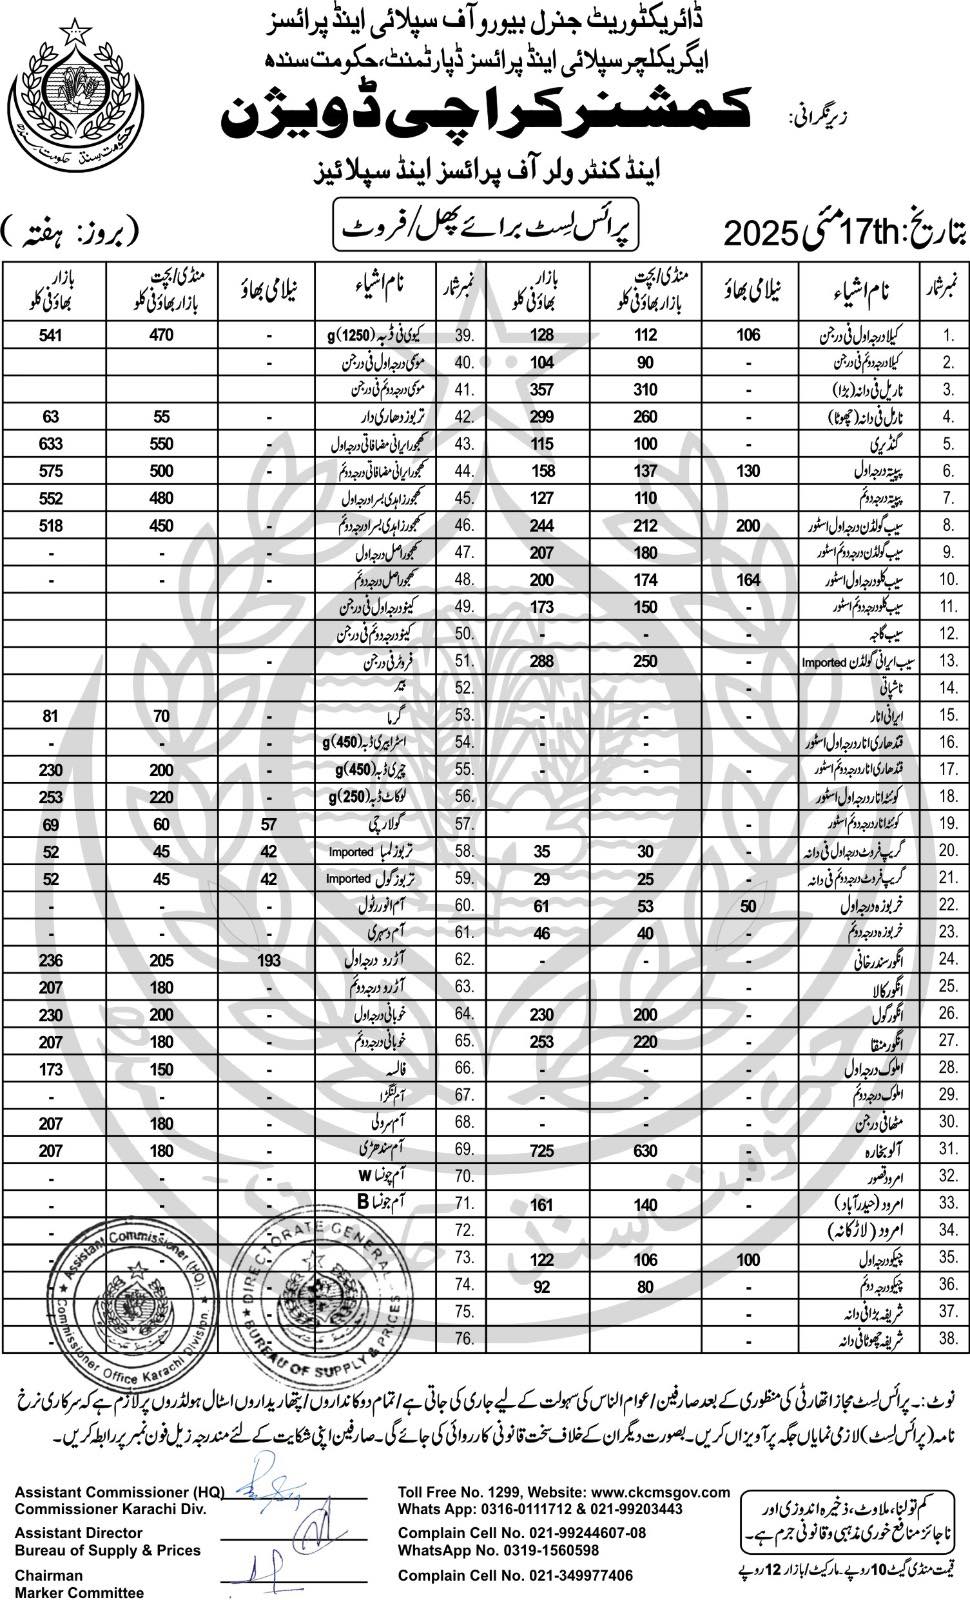 ڈائریکٹوریٹ جنرل بیورو آف سپلائی اینڈ پرائسز
ایگریکلچر سپلائی اینڈ پرائسز ڈپارٹمنٹ، حکومت سندھ
زیر نگرانی: کمشنر کراچی ڈویژن
اینڈ کنٹرولر آف پرائسز اینڈ سپلائیز
بتاریخ: 17th مئی 2025 پرائس لِسٹ برائے پھل/فروٹ (بروز: ہفتہ)
نمبر شمار نام اشیاء نیلامی بھاؤ منڈی/بچت بازار بھاؤ فی کلو بازار بھاؤ فی کلو
1. کیلا درجہ اول فی درجن 106 112 128
2. کیلا درجہ دوئم فی درجن - 90 104
3. ناریل فی دانہ (بڑا) - 310 357
4. نارل فی دانہ (چھوٹا) - 260 299
5. گنڈیری - 100 115
6. پپیتہ درجہ اول 130 137 158
7. پپیتہ درجہ دوئم - 110 127
8. سیب گولڈن درجہ اول اسٹور 200 212 244
9. سیب گولڈن درجہ دوئم اسٹور - 180 207
10. سیب کلو درجہ اول اسٹور 164 174 200
11. سیب کلو درجہ دوئم اسٹور - 150 173
12. سیب گاجہ - - -
13. سیب ایرانی گولڈن Imported - 250 288
14. ناشپاتی -
15. ایرانی انار - - -
16. قندھاری انار درجہ اول اسٹور - - -
17. قندھاری انار درجہ دوئم اسٹور - - -
18. کوئٹہ انار درجہ اول اسٹور
19. کوئٹہ انار درجہ دوئم اسٹور -
20. گریپ فروٹ درجہ اول فی دانہ - 30 35
21. گریپ فروٹ درجہ دوئم فی دانہ - 25 29
22. خربوزہ درجہ اول 50 53 61
23. خربوزہ درجہ دوئم - 40 46
24. انگور سندرخانی - - -
25. انگور کالا
26. انگور گول - 200 230
27. انگور منقا - 220 253
28. املوک درجہ اول - - -
29. املوک درجہ دوئم
30. مٹھا فی درجن - - -
31. آلو بخارہ - 630 725
32. امرود قصور -
33. امرود (حیدرآباد) - 140 161
34. امرود (لاڑکانہ)
35. چیکو درجہ اول 100 106 122
36. چیکو درجہ دوئم - 80 92
37. شریفہ بڑا فی دانہ -
38. شریفہ چھوٹا فی دانہ -
نمبر شمار نام اشیاء نیلامی بھاؤ منڈی/بچت بازار بھاؤ فی کلو بازار بھاؤ فی کلو
39. کیوی فی ڈبہ (1250)g - 470 541
40. موسمی درجہ اول فی درجن -
41. موسمی درجہ دوئم فی درجن
42. تربوز دھاری دار - 55 63
43. کھجور ایرانی مضافاتی درجہ اول - 550 633
44. کھجور ایرانی مضافاتی درجہ دوئم - 500 575
45. کھجور زاہدی بسرا درجہ اول - 480 552
46. کھجور زاہدی بسرا درجہ دوئم - 450 518
47. کھجور اصل درجہ اول - - -
48. کھجور اصل درجہ دوئم - - -
49. کینو درجہ اول فی درجن -
50. کینو درجہ دوئم فی درجن
51. فروٹر فی درجن -
52. بیر
53. گرما - 70 81
54. اسٹرابیری ڈبہ (450)g - - -
55. چیری ڈبہ (450)g - 200 230
56. لوکاٹ ڈبہ (250)g - 220 253
57. گولارچی 57 60 69
58. تربوز لمبا Imported 42 45 52
59. تربوز گول Imported 42 45 52
60. آم انور رٹول - - -
61. آم دسہری - - -
62. آڑو درجہ اول 193 205 236
63. آڑو درجہ دوئم - 180 207
64. خوبانی درجہ اول - 200 230
65. خوبانی درجہ دوئم - 180 207
66. فالسہ - 150 173
67. آم لنگڑا - - -
68. آم سرولی - 180 207
69. آم سندھڑی - 180 207
70. آم چونسا W - - -
71. آم چونسا B - - -
72.
73.
74.
75.
76.
Assistant Commissioner (HQ).
Commissioner Office Karachi Division.
DIRECTORATE GENERAL
BUREAU OF SUPPLY & PRICES
نوٹ:۔ پرائس لِسٹ مجاز اتھارٹی کی منظوری کے بعد صارفین/عوام الناس کی سہولت کے لیے جاری کی جاتی ہے/تمام دوکانداروں/پتھاریداروں اسٹال ہولڈروں پر لازم ہے کہ سرکاری نرخ
نامہ (پرائس لِسٹ) لازمی نمایاں جگہ پر آویزاں کریں۔ بصورت دیگر ان کے خلاف سخت قانونی کارروائی کی جائے گی۔ صارفین اپنی شکایت کے لئے مندرجہ زیل فون نمبر پر رابطہ کریں۔
Assistant Commissioner (HQ)
Commissioner Karachi Div.
Assistant Director
Bureau of Supply & Prices
Chairman
Marker Committee
Toll Free No. 1299, Website: www.ckcmsgov.com
Whats App: 0316-0111712 & 021-99203443
Complain Cell No. 021-99244607-08
WhatsApp No. 0319-1560598
Complain Cell No. 021-349977406
کم تولنا، ملاوٹ، ذخیرہ اندوزی اور
ناجائز منافع خوری مذہبی و قانونی جرم ہے۔
قیمت منڈی گیٹ 10 روپے۔ مارکیٹ/بازار 12 روپے